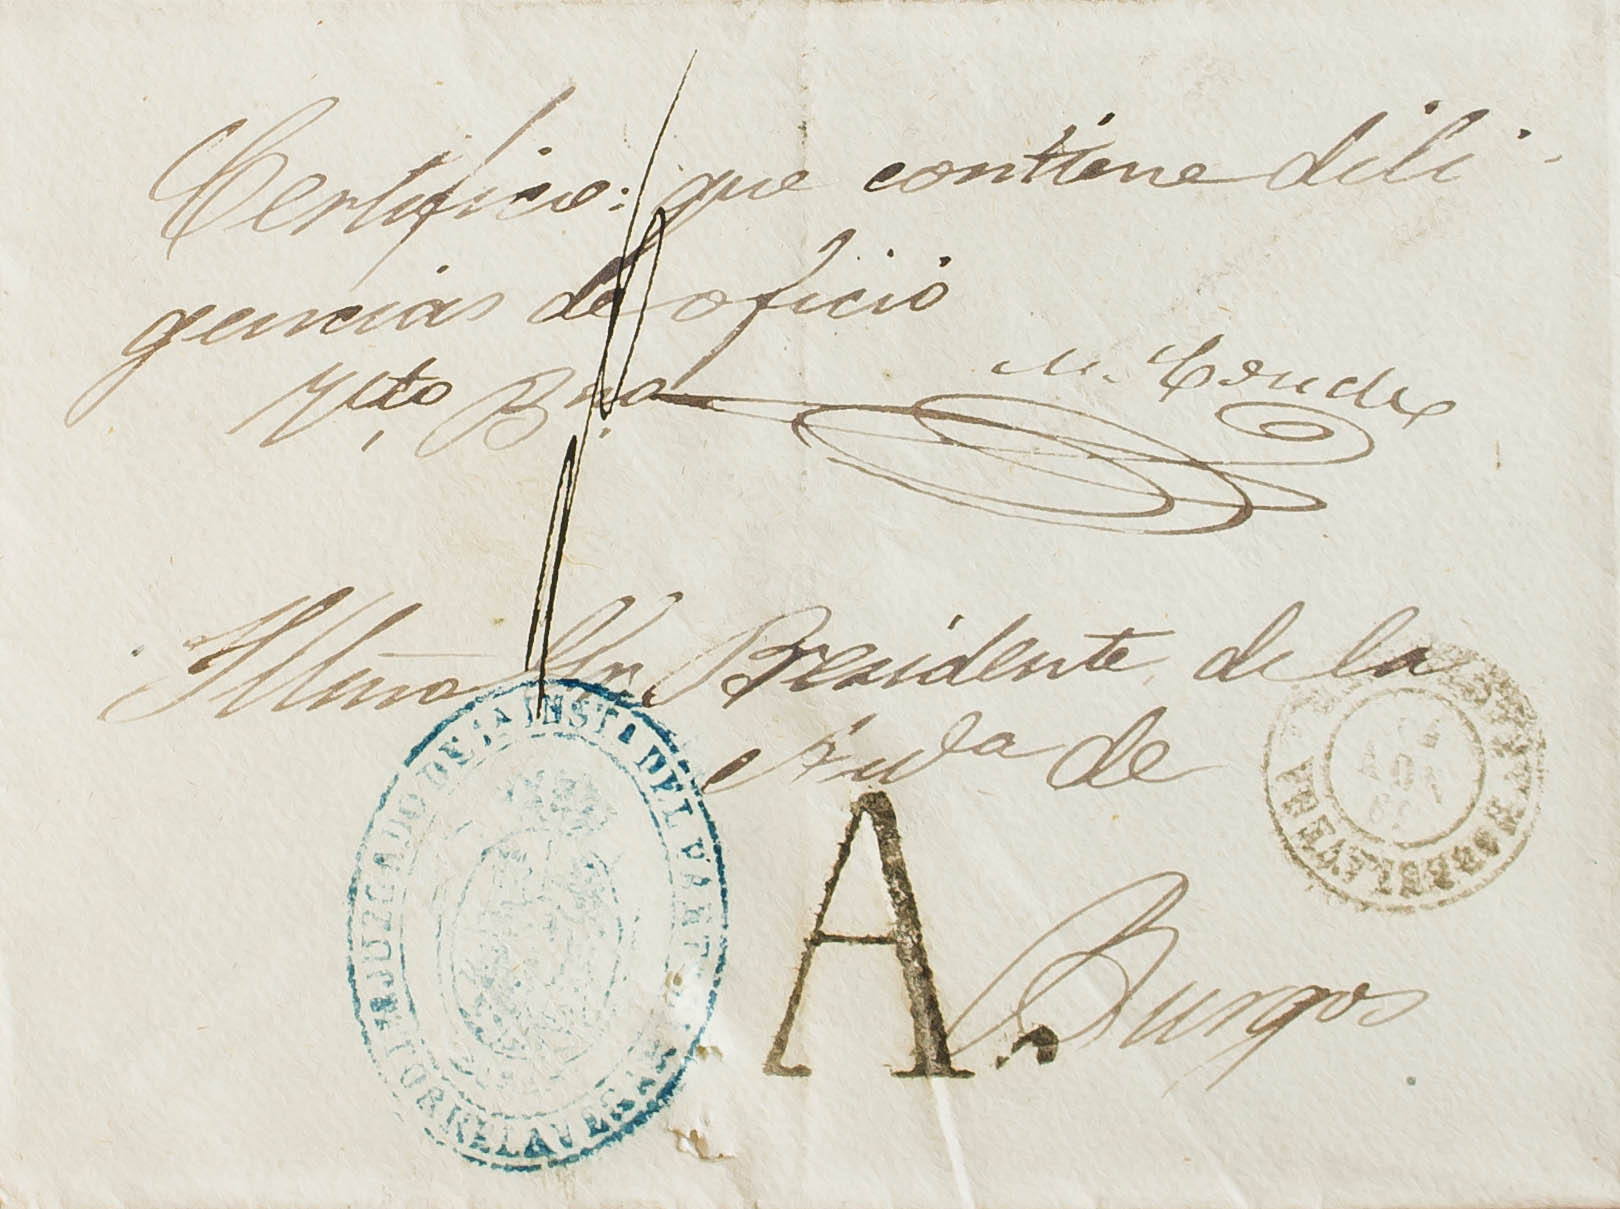 Certifico: que contiene dili-
gencias de oficio
M. Conde
Illmo Sr. Presidente de la
Auda de
Burgos
A.
JUZGADO DE 1A INSTA DEL PART
TORRELAVEGA
TORRELAVEGA